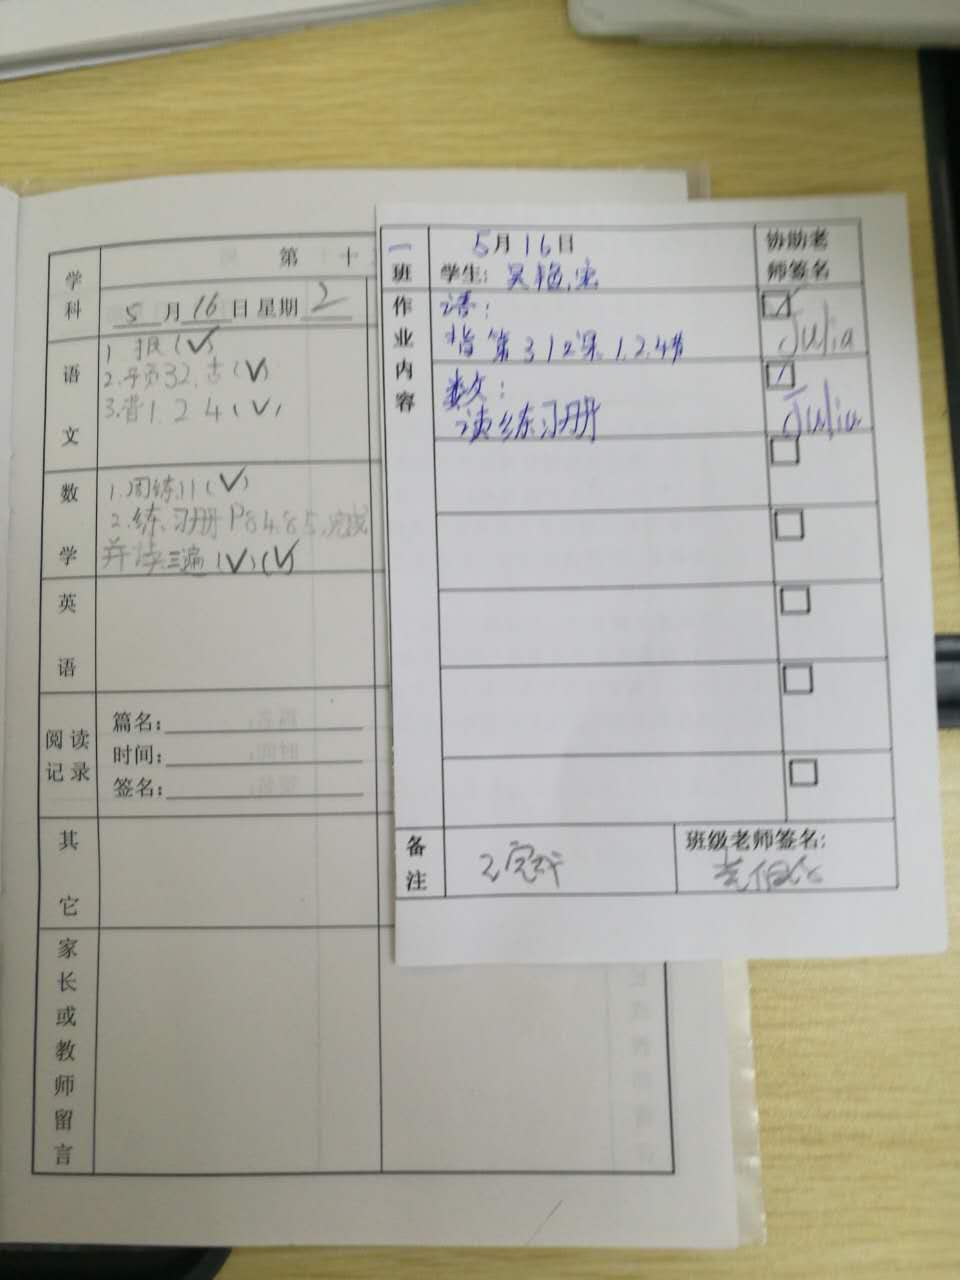 学科
第 十
5月16日 星期2
语文
1 报(✓)
2.牙页32.古(✓)
3.背1.2 4(✓)
数学
1.周练11(✓)
2.练习册P84.85.完成
并读三遍(✓)(✓)
英语
阅读记录
篇名:
时间:
签名:
其它
家长或教师留言
一班
5月16日
学生:吴艳
协助老师签名
作业内容
语:
背第312课1.2.4
Julia
数:
读练习册
Julia
备注
已完成
班级老师签名: